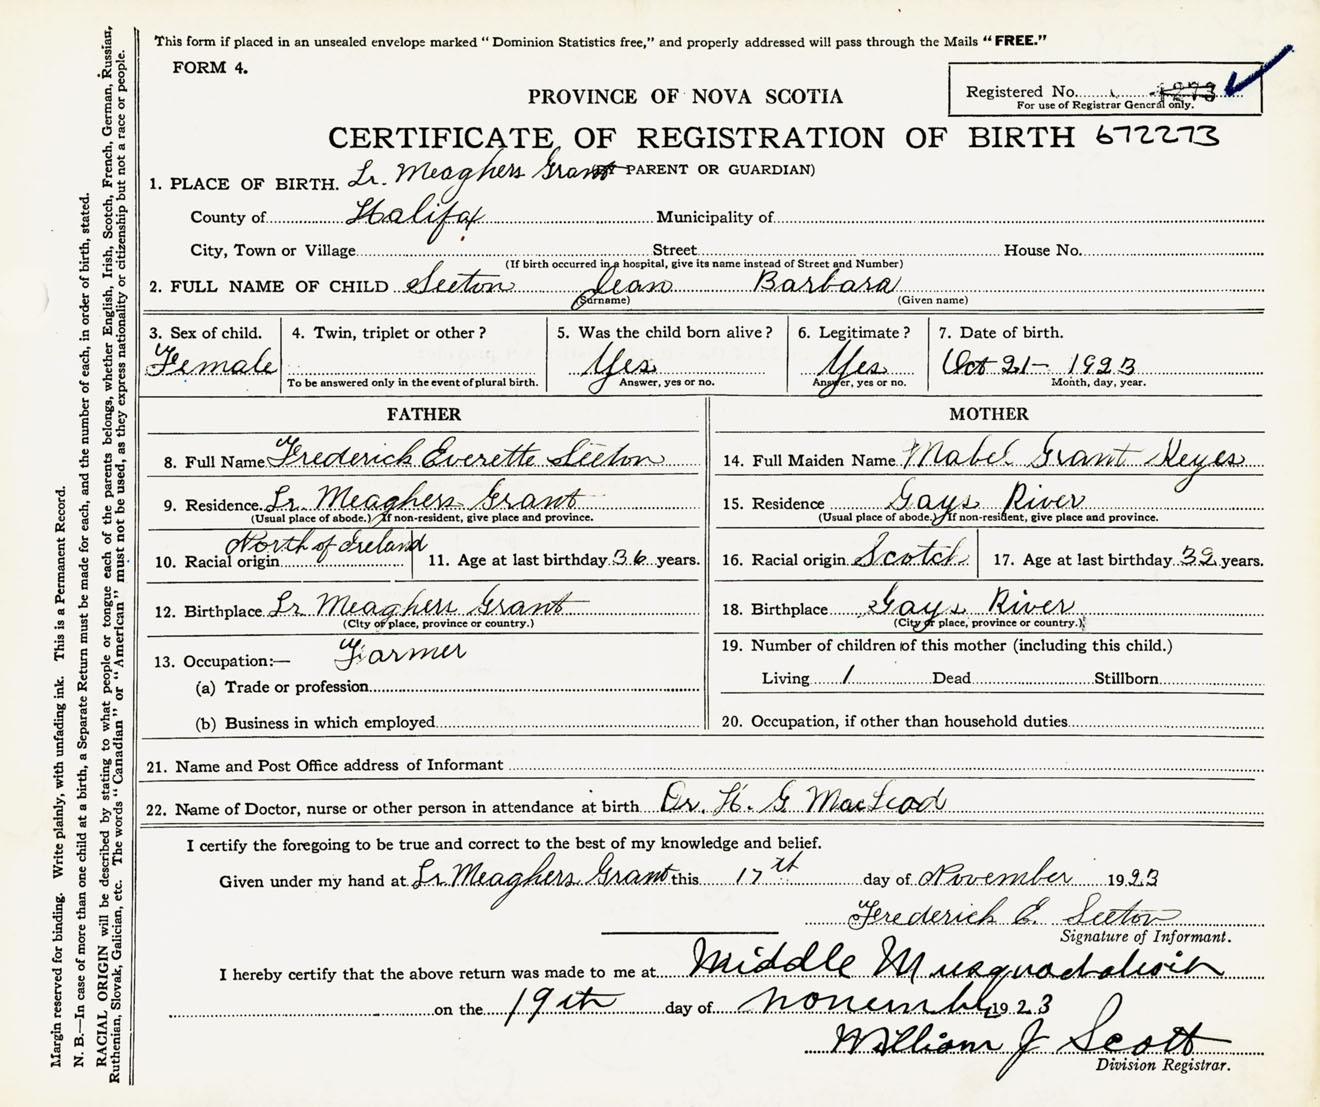 This form if placed in an unsealed envelope marked "Dominion Statistics free," and properly addressed will pass through the Mails "FREE."
FORM 4.
Registered No. 1273
For use of Registrar General only.
PROVINCE OF NOVA SCOTIA
CERTIFICATE OF REGISTRATION OF BIRTH 672273
(BY PARENT OR GUARDIAN)
1. PLACE OF BIRTH. Lr. Meaghers Grant
County of Halifax Municipality of
City, Town or Village Street House No.
(If birth occurred in a hospital, give its name instead of Street and Number)
2. FULL NAME OF CHILD Seeton Jean Barbara
(Surname) (Given name)
3. Sex of child. 4. Twin, triplet or other? 5. Was the child born alive? 6. Legitimate? 7. Date of birth.
Female Yes Yes Oct 21- 1923
To be answered only in the event of plural birth. Answer, yes or no. Answer, yes or no. Month, day, year.
FATHER
8. Full Name Frederick Everette Seeton
9. Residence. Lr. Meaghers Grant
(Usual place of abode.) If non-resident, give place and province.
10. Racial origin North of Ireland 11. Age at last birthday 36 years.
12. Birthplace Lr Meaghers Grant
(City or place, province or country.)
13. Occupation:— Farmer
(a) Trade or profession
(b) Business in which employed
MOTHER
14. Full Maiden Name Mabel Grant Keyes
15. Residence Gays River
(Usual place of abode.) If non-resident, give place and province.
16. Racial origin Scotch 17. Age at last birthday 32 years.
18. Birthplace Gays River
(City or place, province or country.)
19. Number of children of this mother (including this child.)
Living 1 Dead Stillborn
20. Occupation, if other than household duties
21. Name and Post Office address of Informant
22. Name of Doctor, nurse or other person in attendance at birth Dr. H. G MacLeod
I certify the foregoing to be true and correct to the best of my knowledge and belief.
Given under my hand at Lr Meaghers Grant this 17th day of November 1923
Frederick E. Seeton
Signature of Informant.
I hereby certify that the above return was made to me at Middle Musquodoboit
on the 19th day of November 1923
William J Scott
Division Registrar.
Margin reserved for binding. Write plainly, with unfading ink. This is a Permanent Record.
N. B.—In case of more than one child at a birth, a Separate Return must be made for each, and the number of each, in order of birth, stated.
RACIAL ORIGIN will be described by stating to what people or tongue each of the parents belongs, whether English, Irish, Scotch, French, German, Russian,
Ruthenian, Slovak, Galician, etc. The words "Canadian" or "American" must not be used, as they express nationality or citizenship but not a race or people.